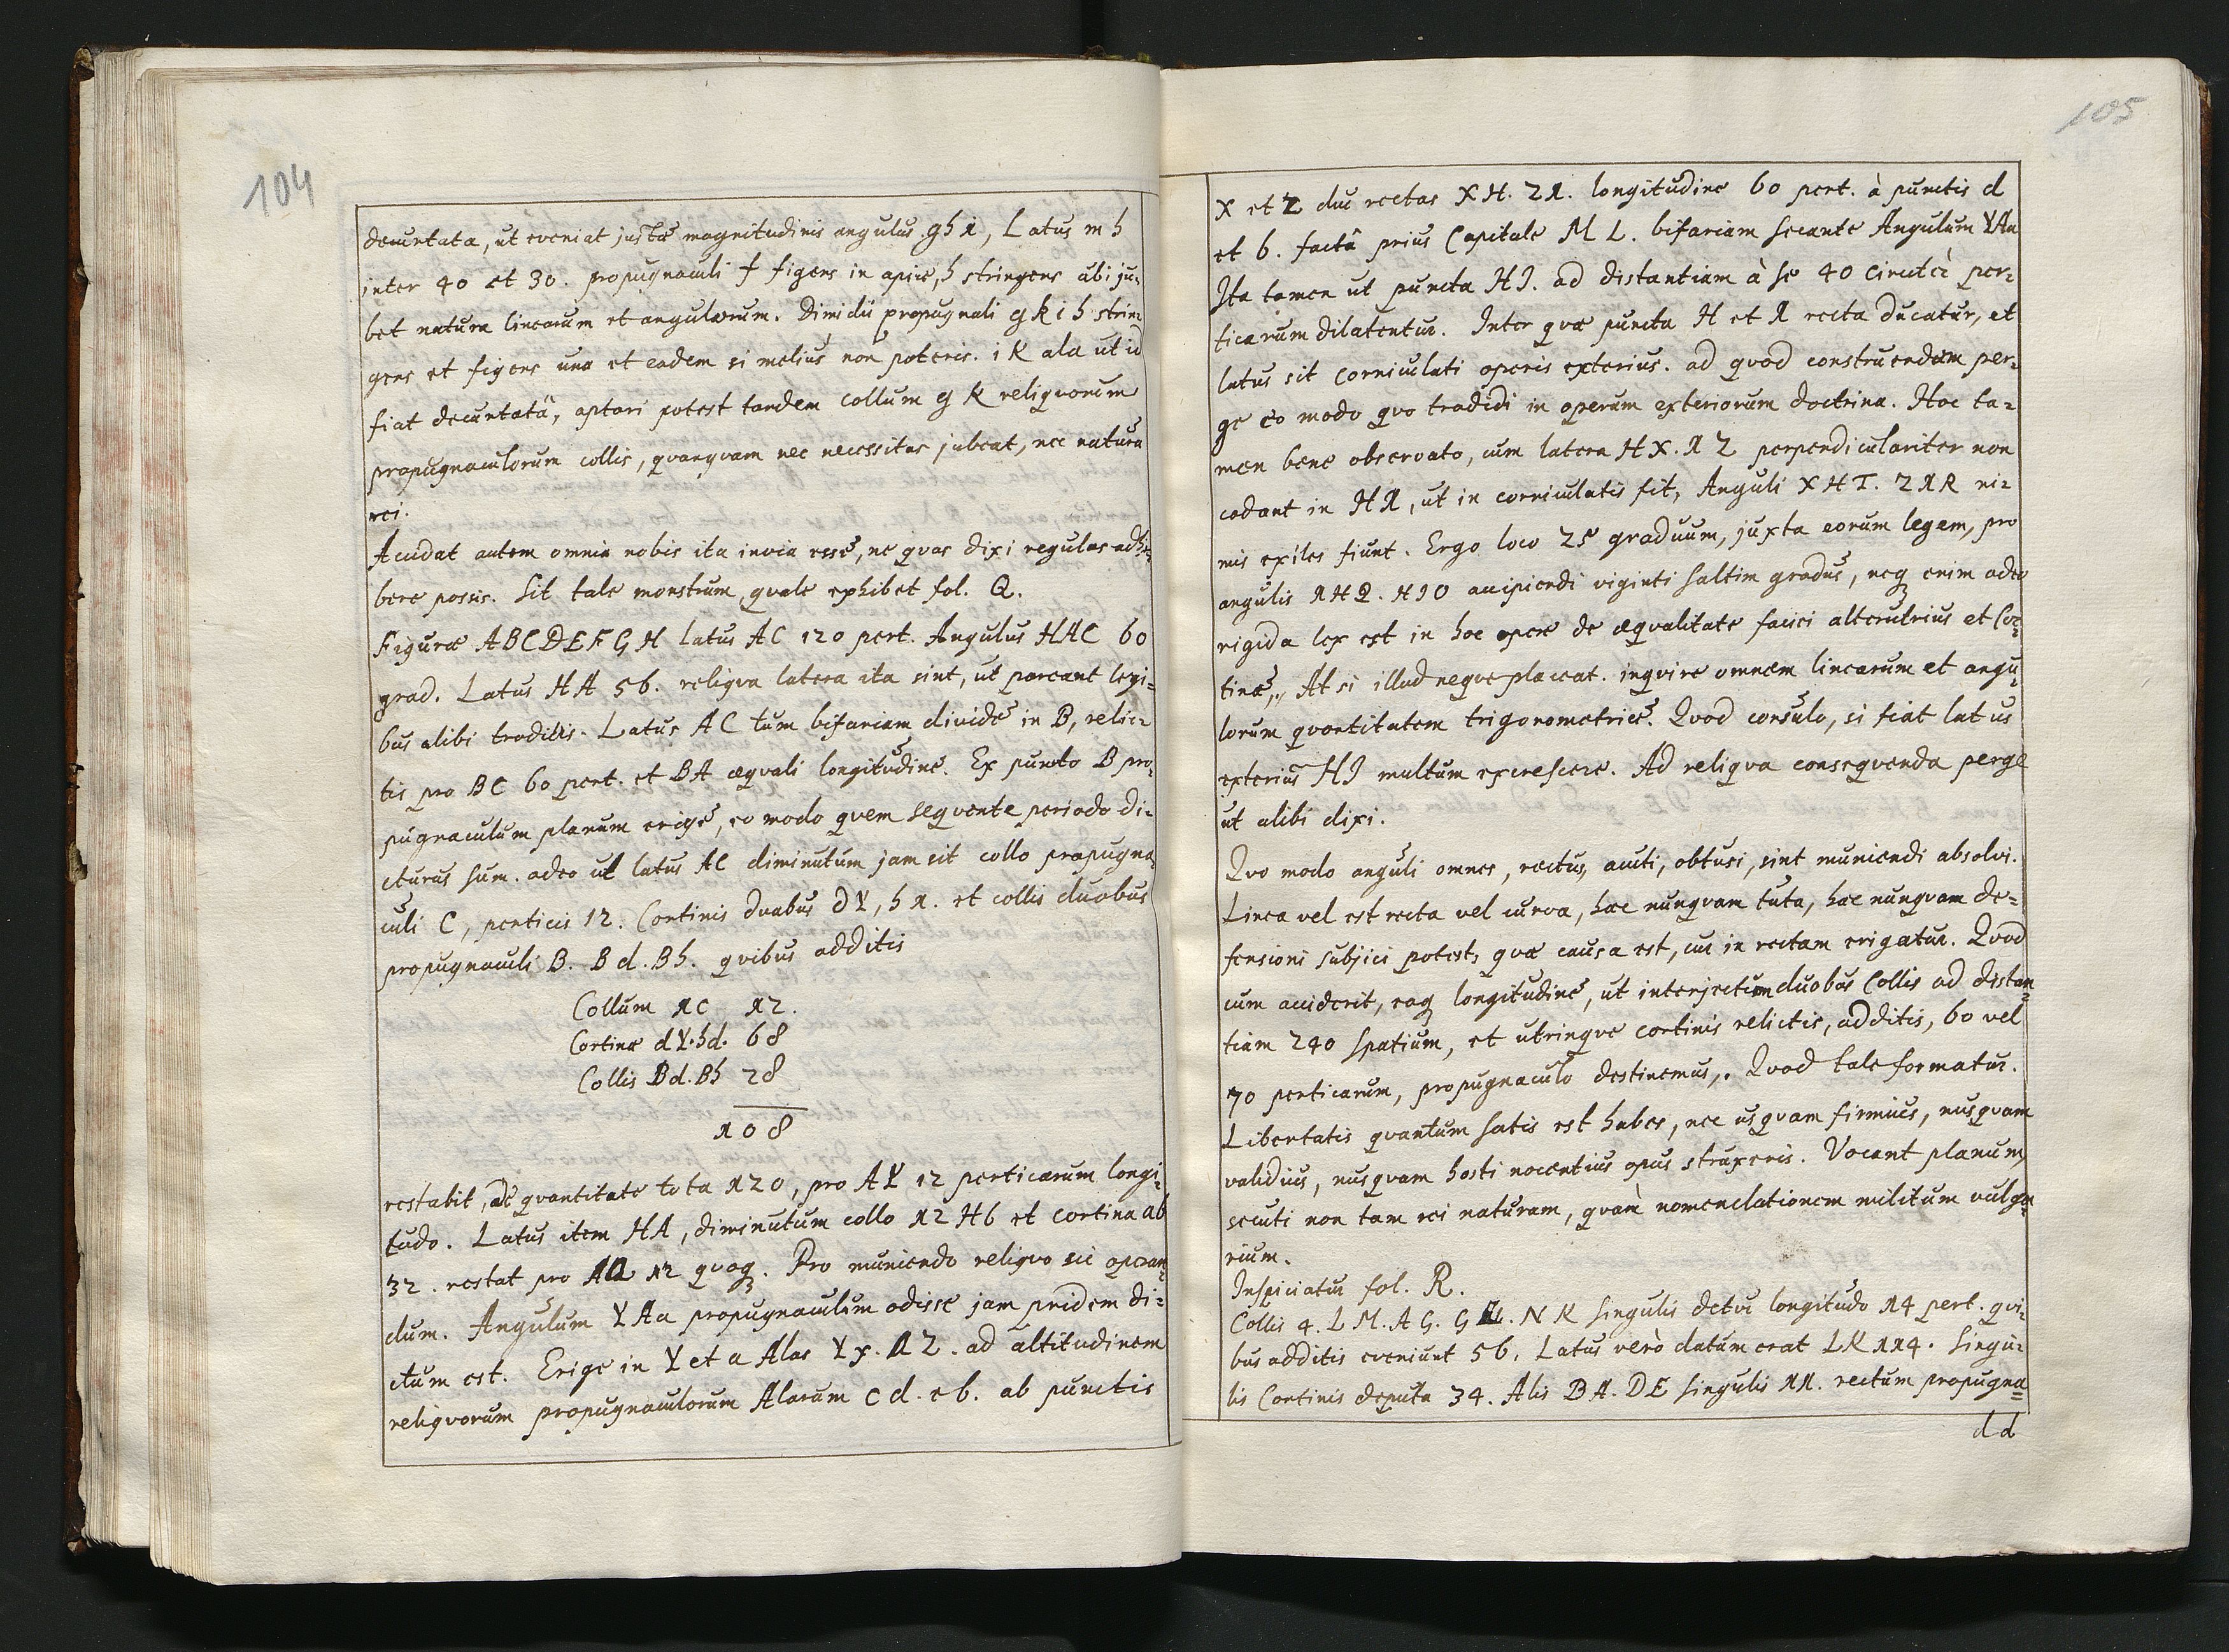 104
decurtata, ut eveniat justæ magnitudinis angulus ghi, Latus mh
inter 40 et 30. propugnaculi f figens in apice, h stringens ubi ju-
bet natura linearum et angulorum. Dimidii propugnali gkih strin-
gens et figens una et eadem si melius non poteris. ik ala ut id
fiat decurtatâ, aptari potest tandem collum gk reliquorum
propugnaculorum collis, quanquam nec necessitas jubeat, nec natura
rei.
Accidat autem omnia nobis ita invia esse, ne quas dixi regulas adhi-
bere possis. Sit tale monstrum quale exhibet fol. Q.
Figuræ ABCDEFGH latus AC 120 pert. Angulus HAC 60
grad. Latus HA 56. reliqva latera ita sint, ut pareant legi=
bus alibi traditis. Latus AC tum bifariam divide in B, relic-
tis pro BC 60 pert. et BA æquali longitudine. Ex puncto B pro-
pugnaculum planum erige, eo modo quem sequente periodo di-
cturus sum. adeo ut latus AC diminutum jam sit collo propugna-
culi C, perticis 12. Cortinis duabus dY, h1. et collis duobus
propugnaculi B. Bd. Bh. quibus additis
Collum 1C 12.
Cortinæ dY.hd. 68
Collis Bd.Bh 28
108
restabit, de quantitate tota 120, pro AY 12 perticarum longi-
tudo. Latus item HA, diminutum collo 12 Hb et cortina ab
32. restat pro Aa 12 quoq. Pro muniendo reliquo sic operan-
dum. Angulum YAa propugnaculum odisse jam pridem di-
ctum est. Erige in Y et a Alas Yx. aZ. ad altitudinem
reliquorum propugnaculorum Alarum cd. eb. ab punctis
105
X et Z duc rectas XH. Z1. longitudine 60 pert. à punctis d
et b. factâ prius Capitale ML. bifariam secante Angulum YAa
Ita tamen ut puncta HI. ad distantiam à se 40 circitè per-
ticarum dilatentur. Inter quæ puncta H et 1 recta ducatur, et
latus sit corniculati operis exterius. ad quod construendum per-
ge eo modo quo tradidi in operum exteriorum doctrina. Hoc ta-
men bene observato, cum latera HX. 1Z perpendiculariter non
cadant in H1, ut in corniculatis fit, Anguli XHI. Z1R ni-
mis exiles fiunt. Ergo loco 25 graduum, juxta eorum legem, pro
angulis 1HQ. HIO accipiendi viginti saltim gradus, neq enim adeo
rigida lex est in hoc opere de æqualitate faciei alterutrius et Cor-
tinæ,. At si illud neque placeat. inquire omnem linearum et angu-
lorum quantitatem trigonometricè. Quod consulo, si fiat latus
exterius HI multum excrescere. Ad reliqua consequenda perge
ut alibi dixi.
Quo modo anguli omnes, rectus, acuti, obtusi, sint muniendi absolvi.
Linea vel est recta vel curva, hæc nunquam tuta, hæc nunquam de=
fensioni subjici potest, quæ causa est, cur in rectam erigatur. Quod
cum acciderit, eaq longitudine, ut interjectum duobus Collis ad distan-
tiam 240 spatium, et utrinque cortinis relictis, additis, 60 vel
70 perticarum, propugnaculo destinemus,. Quod tale formatur.
Libertatis quantum satis est habes, nec usquam firmius, nusquam
validius, nusquam hosti nocentius opus struxeris. Vocant planum,
secuti non tam rei naturam, quàm nomenclationem militum vulga-
rium.
Inspiciatur fol. R.
Collis 4. LM. AG. G. NK singulis detur longitudo 14 pert. qui-
bus additis eveniunt 56. Latus verò datum erat LK 114. Singu-
lis Cortinis deputa 34. Alis BA. DE singulis 11. rectum propugna=
dd